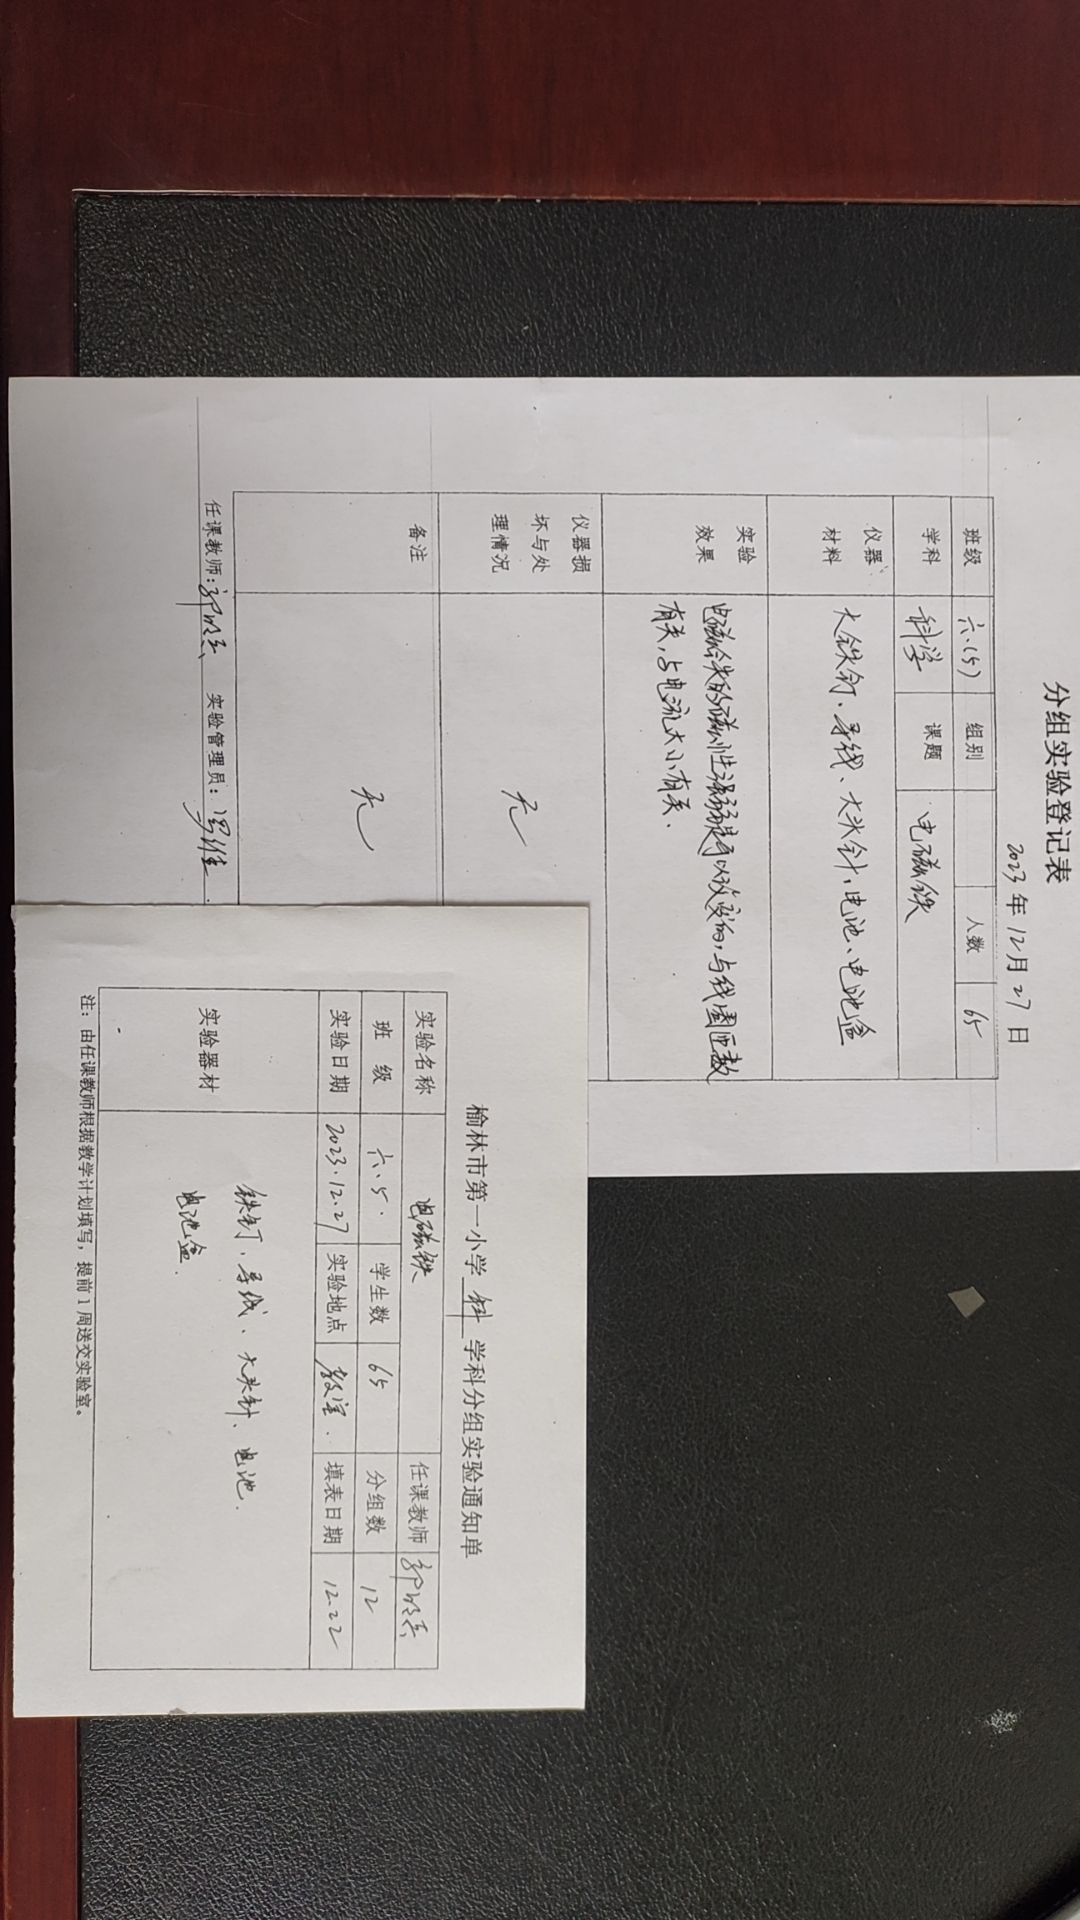 分组实验登记表
2023年12月27日
班级 六.(5) 组别 人数 65
学科 科学 课题 电磁铁
仪器材料 大铁钉、导线、大头针、电池、电池盒
实验效果 电磁铁的磁性强弱是可以改变的,与线圈匝数
有关,与电流大小有关.
仪器损坏与处理情况 无
备注 无
任课教师: 实验管理员:
榆林市第一小学 科 学科分组实验通知单
实验名称 电磁铁 任课教师
班级 六.5. 学生数 65 分组数 12
实验日期 2023.12.27 实验地点 教室. 填表日期 12.22
实验器材 铁钉、导线、大头针、电池.
电池盒.
注:由任课教师根据教学计划填写,提前1周送交实验室。